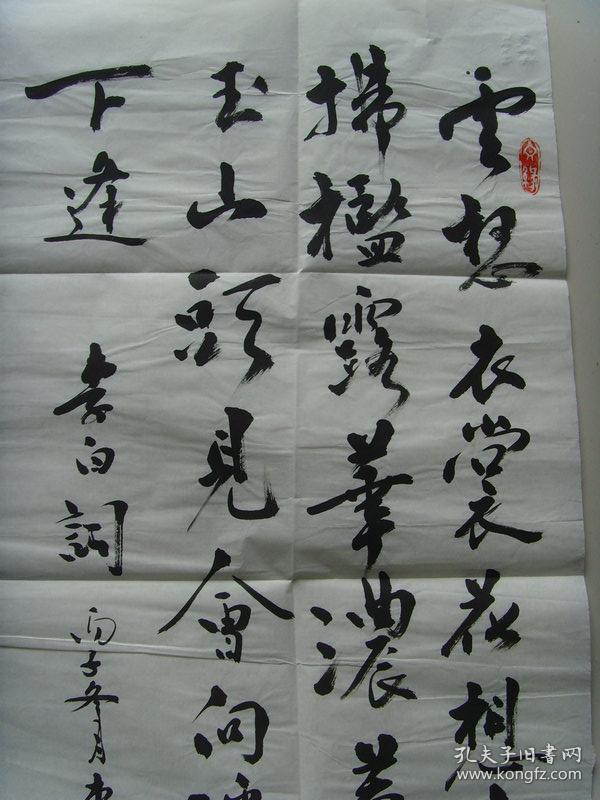 雲想衣裳花想
掃檻露華濃若
玉山頭見會向
下逢
李白詞
丙子冬月
孔夫子旧书网
www.kongfz.com